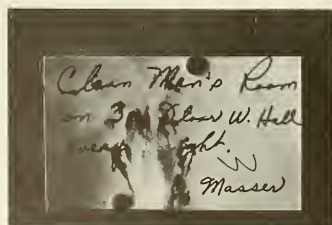 Clean Men's Room
on 3rd Floor W. Hall
every night.
Masser